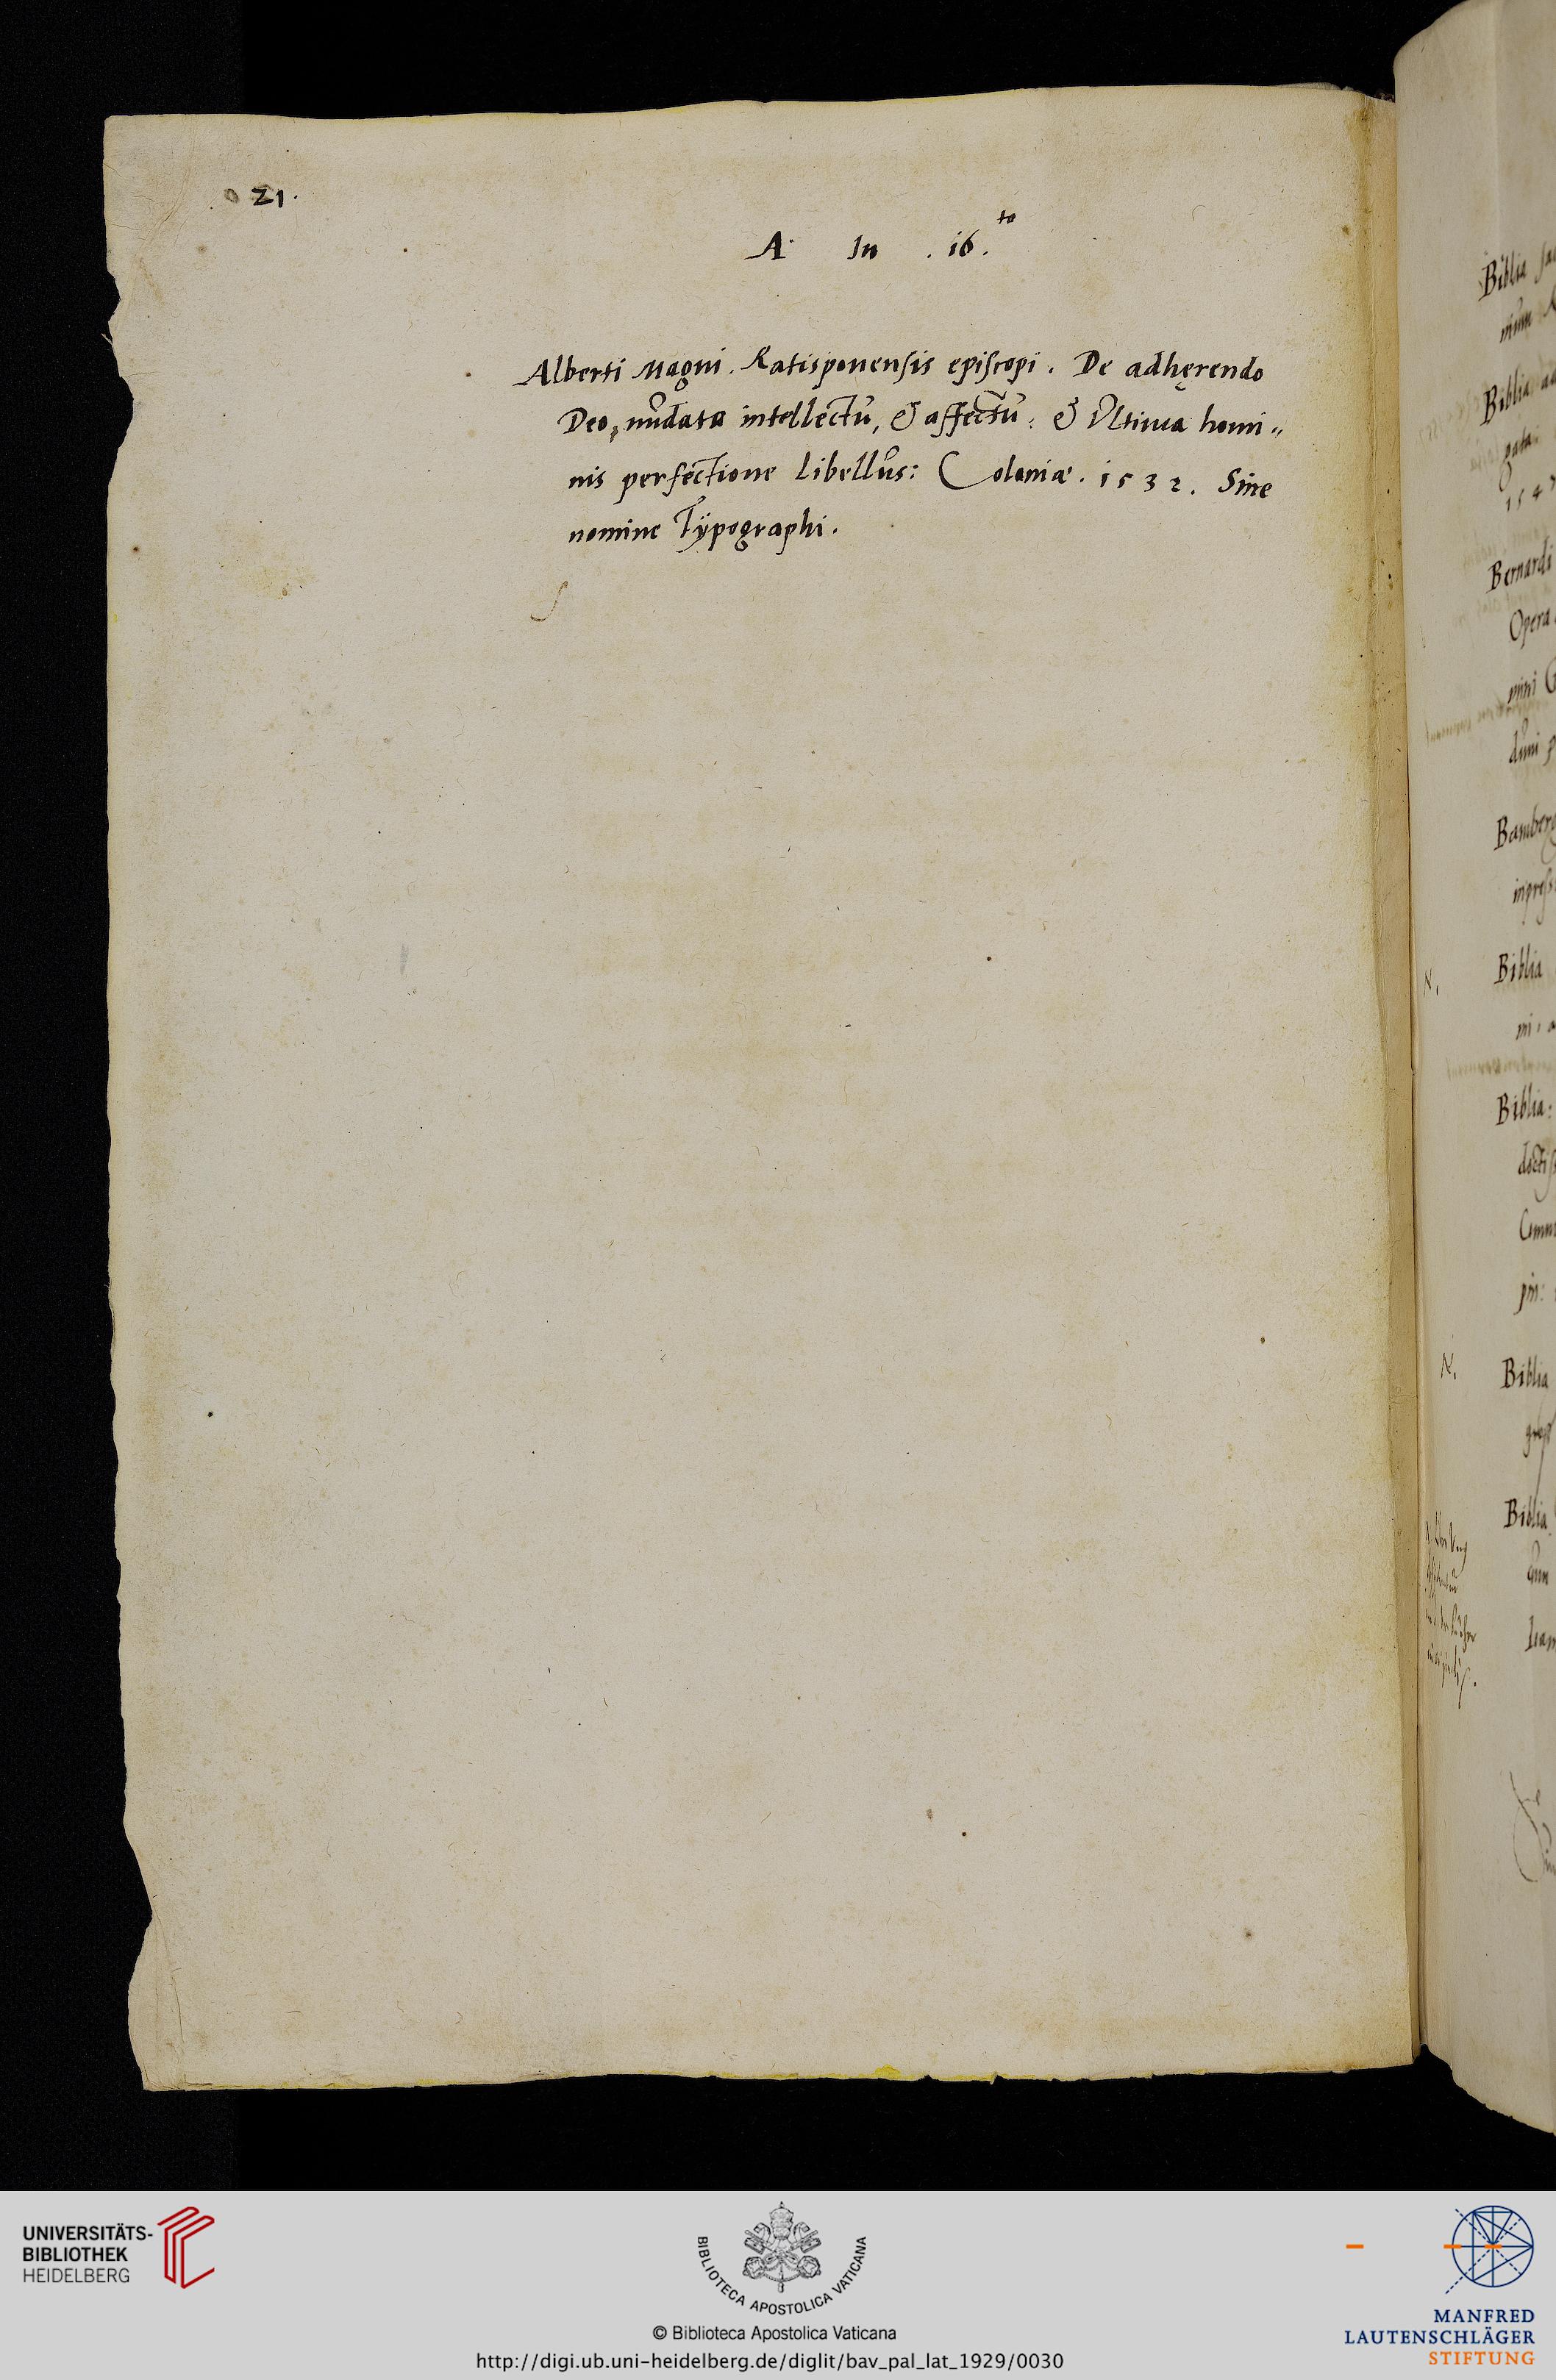 21.
A. In .16.to
Alberti Magni. Ratisponensis episcopi. De adhęrendo
Deo, nudata intellectu, & affectu: & Ultima homi„
nis perfectione Libellus: Coloniæ. 1532. Sine
nomine Typographi.
Biblia
Biblia
gata:
154
Bernardi
Opera
pini
Bamberg
impress
N. Biblia
Biblia:
doctiss
pin:
N. Biblia
Biblia
UNIVERSITÄTS-
BIBLIOTHEK
HEIDELBERG
BIBLIOTECA APOSTOLICA VATICANA
© Biblioteca Apostolica Vaticana
http://digi.ub.uni-heidelberg.de/diglit/bav_pal_lat_1929/0030
MANFRED
LAUTENSCHLÄGER
STIFTUNG